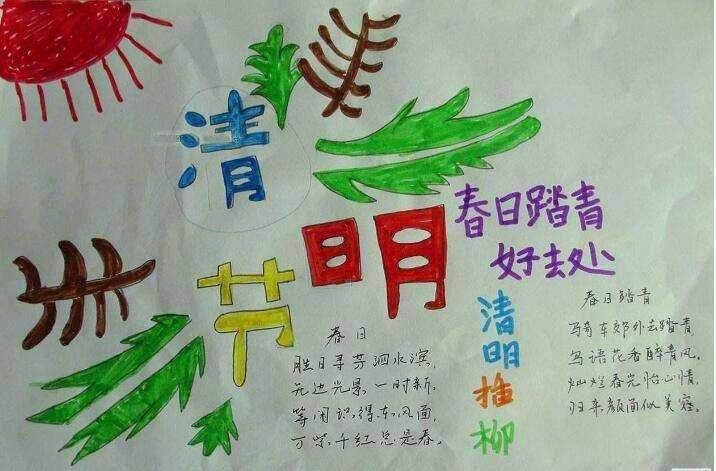 清
明
节
春日踏青
好去处
清明插柳
春日
胜日寻芳泗水滨,
无边光景一时新。
等闲识得东风面,
万紫千红总是春。
春日踏青
骑车郊外去踏青
鸟语花香醉清风,
灿烂春光怡心情,
归来颜面似美容。